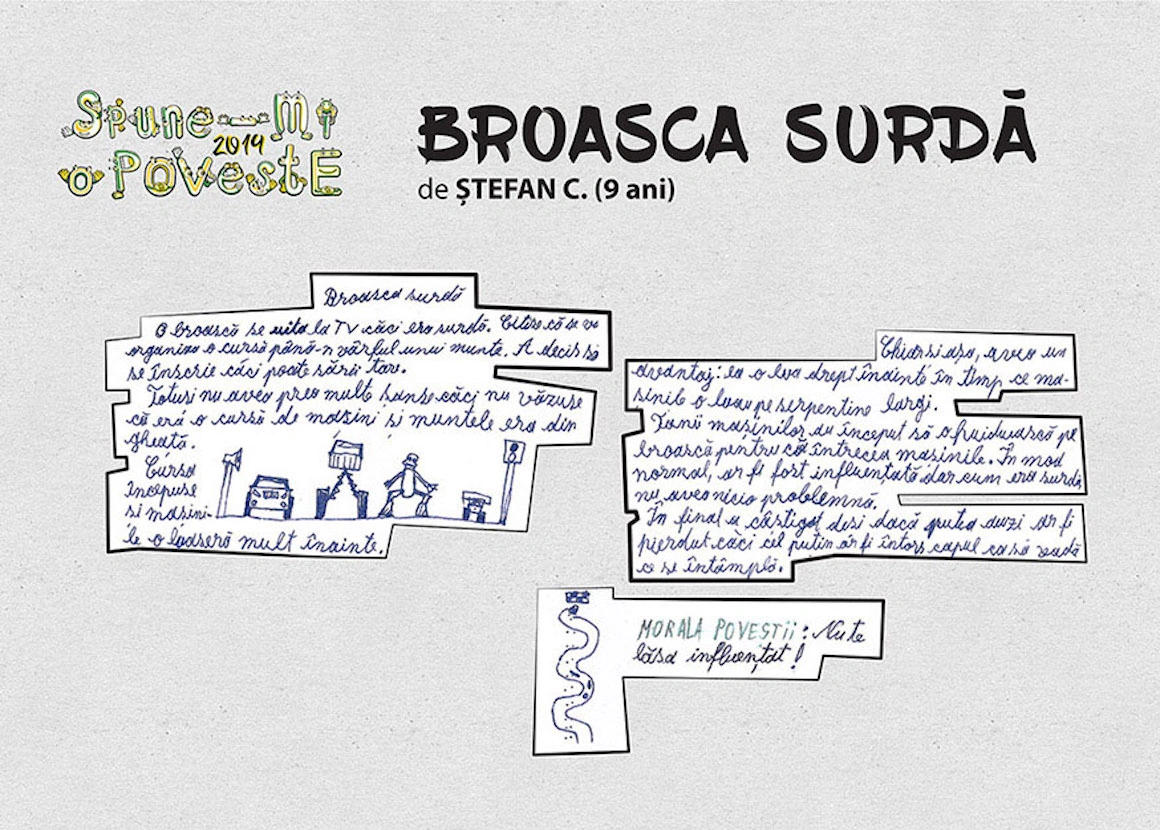 Spune-Mi
2019
o POVestE
BROASCA SURDĂ
de ȘTEFAN C. (9 ani)
Broasca surdă
O broască se uita la TV căci era surdă. Citise că se va
organiza o cursă până-n vârful unui munte. A decis să
se înscrie căci poate sării tare.
Totuși nu avea prea multe șanse căci nu văzuse
că era o cursă de mașini și muntele era din
gheață.
Cursa
începuse
si mașini-
le o lăaseră mult înainte.
Chiar si așa, avea un
avantaj: ea o lua drept înainte în timp ce ma-
sinile o luau pe serpentine largi.
Fanii mașinilor au început să o huiduiască pe
broască pentru că întrecea mașinile. În mod
normal, ar fi fost influentată dar cum era surdă,
nu avea nicio problemnă.
În final a câstigat desi dacă putea auzi ar fi
pierdut căci cel putin ar fi întors capul ca să vadă
ce se întâmplă.
MORALA POVESTII: Nu te
lăsa influențat!